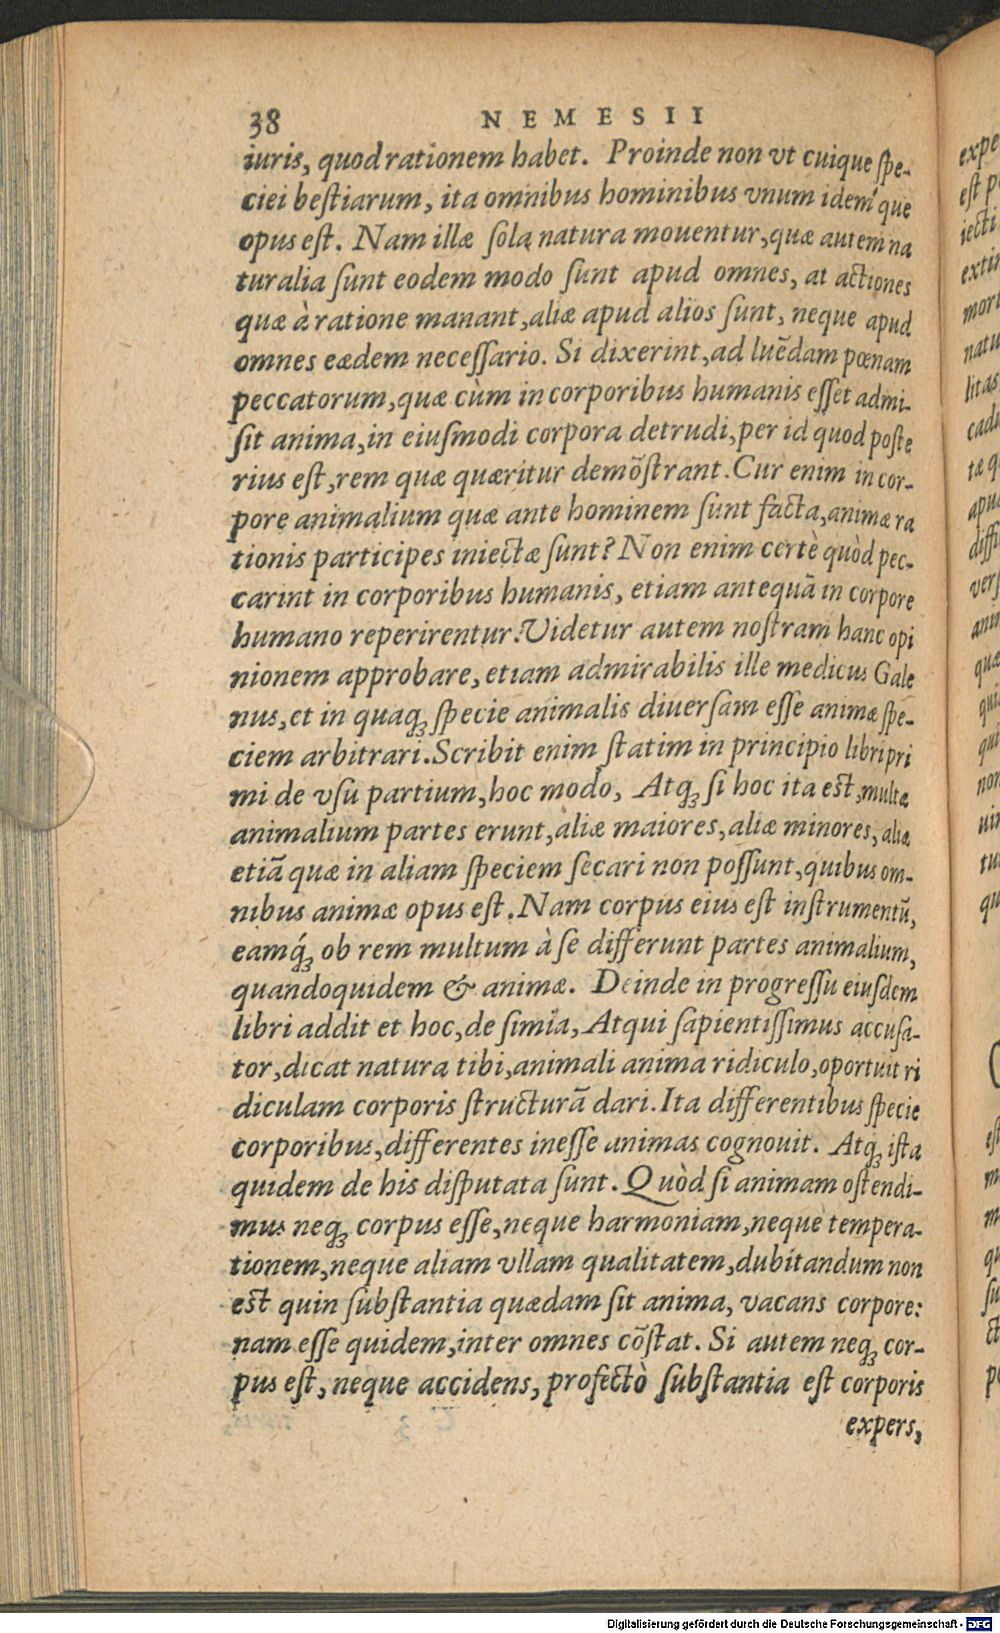 38 NEMESII
iuris, quod rationem habet. Proinde non vt cuique ſpe-
ciei beſtiarum, ita omnibus hominibus vnum idem'que
opus est. Nam illæ ſola natura mouentur, quæ autem na
turalia ſunt eodem modo ſunt apud omnes, at actiones
quæ à ratione manant, aliæ apud alios ſunt, neque apud
omnes eædem neceſſario. Si dixerint, ad luẽdam pœnam
peccatorum, quæ cùm in corporibus humanis eſſet admi-
ſit anima, in eiuſmodi corpora detrudi, per id quod poſte
rius eſt, rem quæ quæritur demõſtrant. Cur enim in cor-
pore animalium quæ ante hominem ſunt facta, animæ ra
tionis participes iniectæ ſunt? Non enim certè quòd pec-
carint in corporibus humanis, etiam antequã in corpore
humano reperirentur. Videtur autem noſtram hanc opi
nionem approbare, etiam admirabilis ille medicus Gale
nus, et in quaq; ſpecie animalis diuerſam eſſe animæ ſpe-
ciem arbitrari. Scribit enim ſtatim in principio libri pri
mi de vſu partium, hoc modo, Atq; ſi hoc ita eſt, multæ
animalium partes erunt, aliæ maiores, aliæ minores, aliæ
etiã quæ in aliam ſpeciem ſecari non poſſunt, quibus om-
nibus animæ opus eſt. Nam corpus eius eſt inſtrumentũ,
eamq́; ob rem multum à ſe differunt partes animalium,
quandoquidem & animæ. Deinde in progreſſu eiuſdem
libri addit et hoc, de ſimia, Atqui ſapientiſſimus accuſa-
tor, dicat natura tibi, animali anima ridiculo, oportuit ri
diculam corporis ſtructurã dari. Ita differentibus ſpecie
corporibus, differentes ineſſe animas cognouit. Atq; iſta
quidem de his diſputata ſunt. Quòd ſi animam oſtendi-
mus neq; corpus eſſe, neque harmoniam, neque tempera-
tionem, neque aliam vllam qualitatem, dubitandum non
eſt quin ſubſtantia quædam ſit anima, vacans corpore:
nam eſſe quidem, inter omnes cõſtat. Si autem neq; cor-
pus eſt, neque accidens, profectò ſubſtantia eſt corporis
expers,
Digitalisierung gefördert durch die Deutsche Forschungsgemeinschaft - DFG